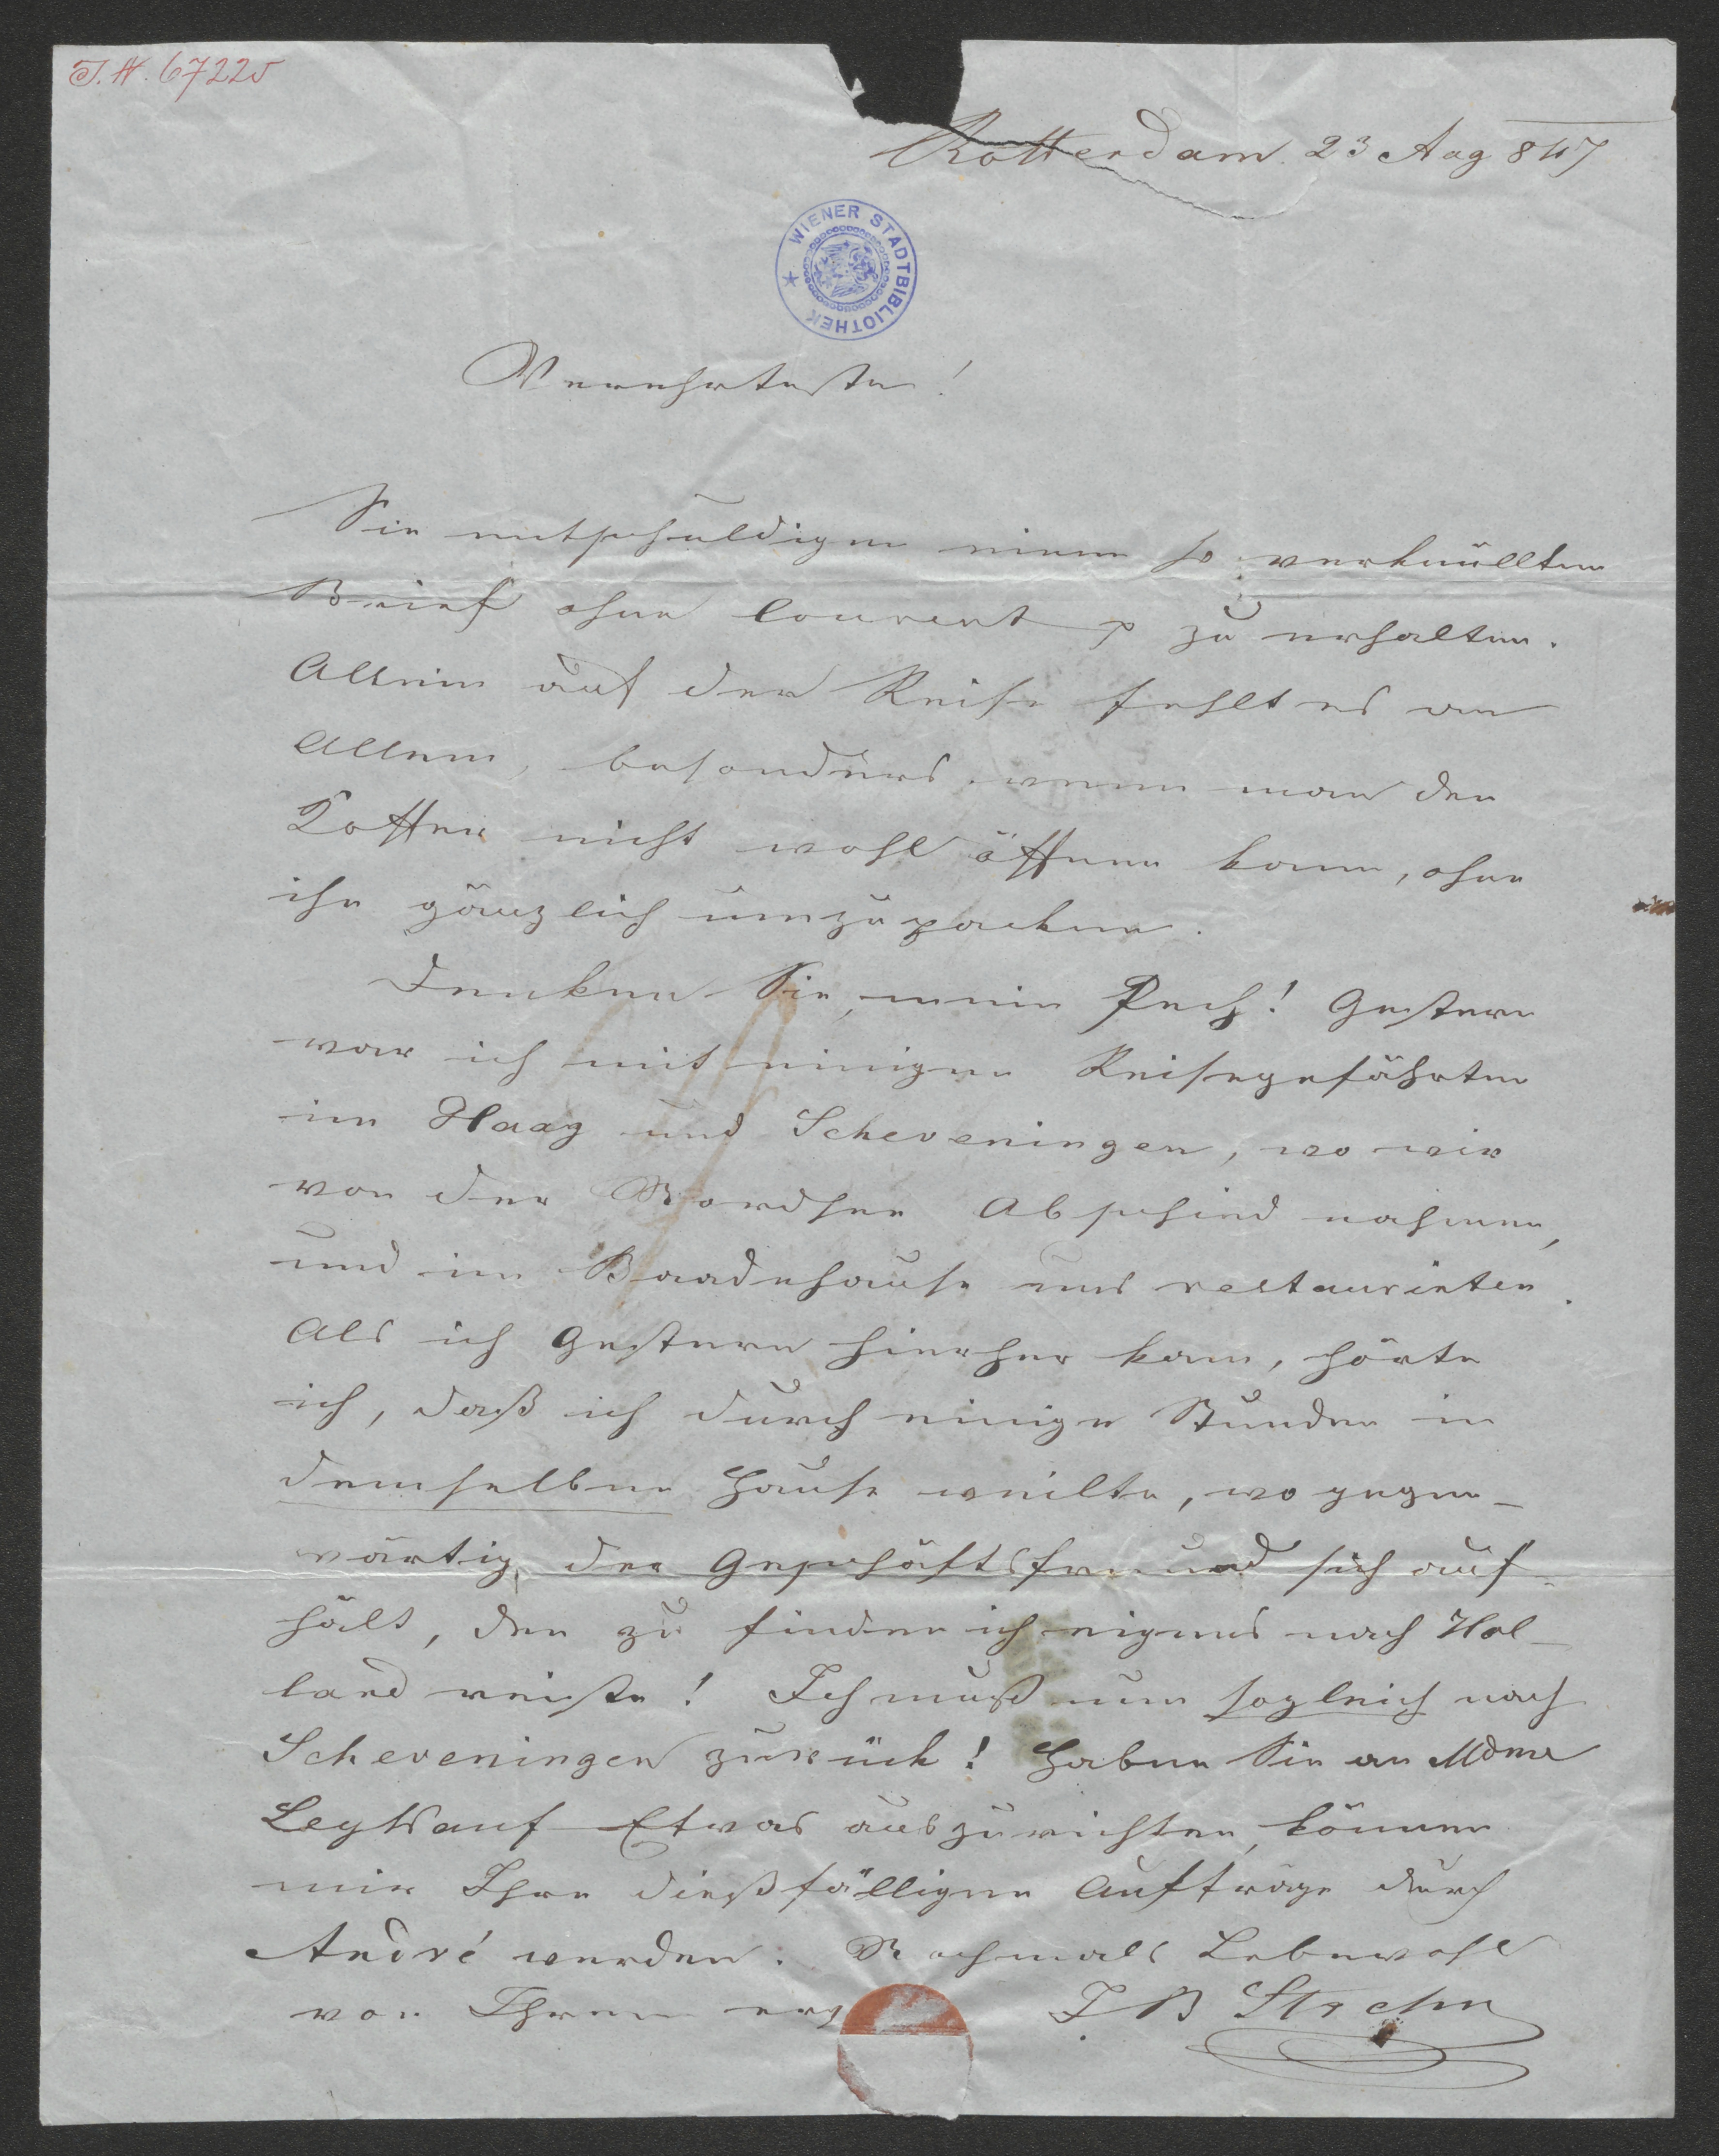 I. N. 67225
Rotterdam. 23 Aug 847
WIENER STADTBIBLIOTHEK
Verehrtester!
Sie entschuldigen einen so verknüllten
Brief ohne Couvert zu erhalten.
Allein auf der Reise fehlt es an
Allem, besonders wenn man den
Koffer nicht wohl öffnen kann, ohne
ihn gänzlich umzupacken.
Denken Sie, mein Pech! Gestern
war ich mit einigen Reisegefährten
im Haag und Scheveningen, wo wir
von der Nordsee Abschied nahmen,
und im Baadehause uns restaurirten.
Als ich Gestern hierher kam, hörte
ich, daß ich durch einige Stunden in
demselben Hause weilte, wo gegen-
wärtig der Geschäftsfreund sich auf-
hält, den zu finden ich eigens nach Hol-
land reiste! Ich muß nun sogleich nach
Scheveningen zurück! Haben Sie an Mdme
Etwas auszurichten, können
mir Ihre dießfälligen Aufträge durch
André werden. Nochmals Lebewohl
von Ihrem erg
J B